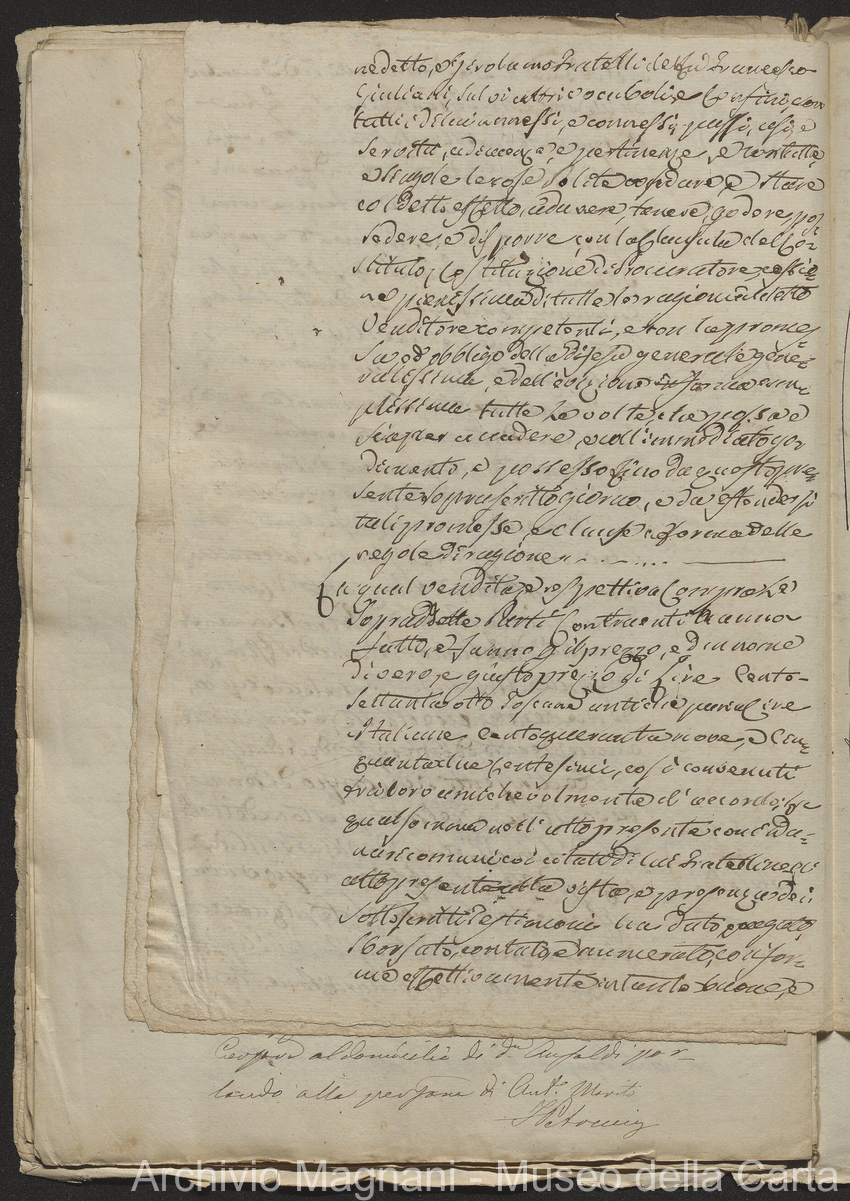 nedetto, e Girolamo Fratelli del fu Francesco
Giuliani, salvi altri vocaboli, e Confini, con
tutti i di lui annessi, e connessi, passi, usi, e
servitù, adiacenze, e pertinenze, e con tutte,
e singole le cose solite andare, e stare
col detto effetto, ad avere, tenere, godere, pos-
sedere, e disporre con la Clausula del Co-
stituto, Costituzione di Procuratore, cessio-
ne pienissima di tutte le ragioni al detto
Venditore competenti, e con la promes-
sa, ed obbligo della difesa generale, gene-
ralissima, e dell'evizione in forma am-
plissima tutte le volte che possa
accadere, e coll'immediato go-
dimento, e possesso fino da questo pre-
sente soprascritto giorno, e da estendersi
tali promesse, e clausule a forma delle
regole di ragione.
La qual vendita, e respettiva Compra le
Sopraddette Parti Contraenti hanno
fatto, e fanno per il prezzo, ed in nome
di vero, e giusto prezzo di Lire Cento-
settantotto Toscane antiche pari a Lire
Italiane centoquarantanove, e Cin-
quantadue Centesimi, così convenuti
tra loro amichevolmente, e d'accordo, la
qual somma nell'atto presente con i da-
nari comuni col citato di lui Fratello
atto presente alla vista, e presenza dei
sottoscritti Testimoni ha dato, pagato,
sborsato, contato, e annumerato, confor-
me effettivamente in tante buone, e
Copia al domicilio di do. Ansaldi par-
lando alla persona di Ant.o
Archivio Magnani - Museo della Carta